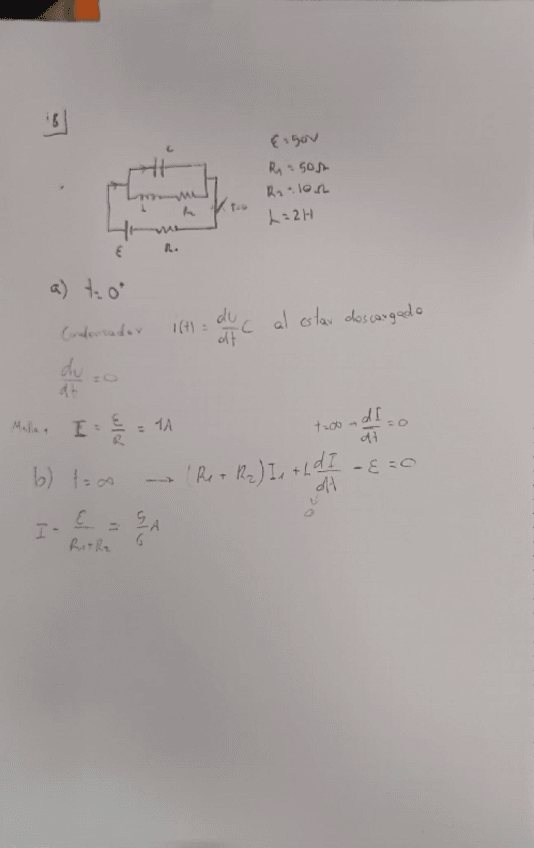 C
L
R₂
t=0
ε
R₁
ε = 50V
R₁ = 50Ω
R₂ = 10Ω
L = 2H
a) t = 0⁺
Condensador i(t) = du/dt C al estar descargado
du/dt = 0
I = ε/R = 1A
t=∞ → dI/dt = 0
b) t = ∞ → (R₁ + R₂) I₁ + L dI/dt - ε = 0
0
I = ε/R₁+R₂ = 5/6 A